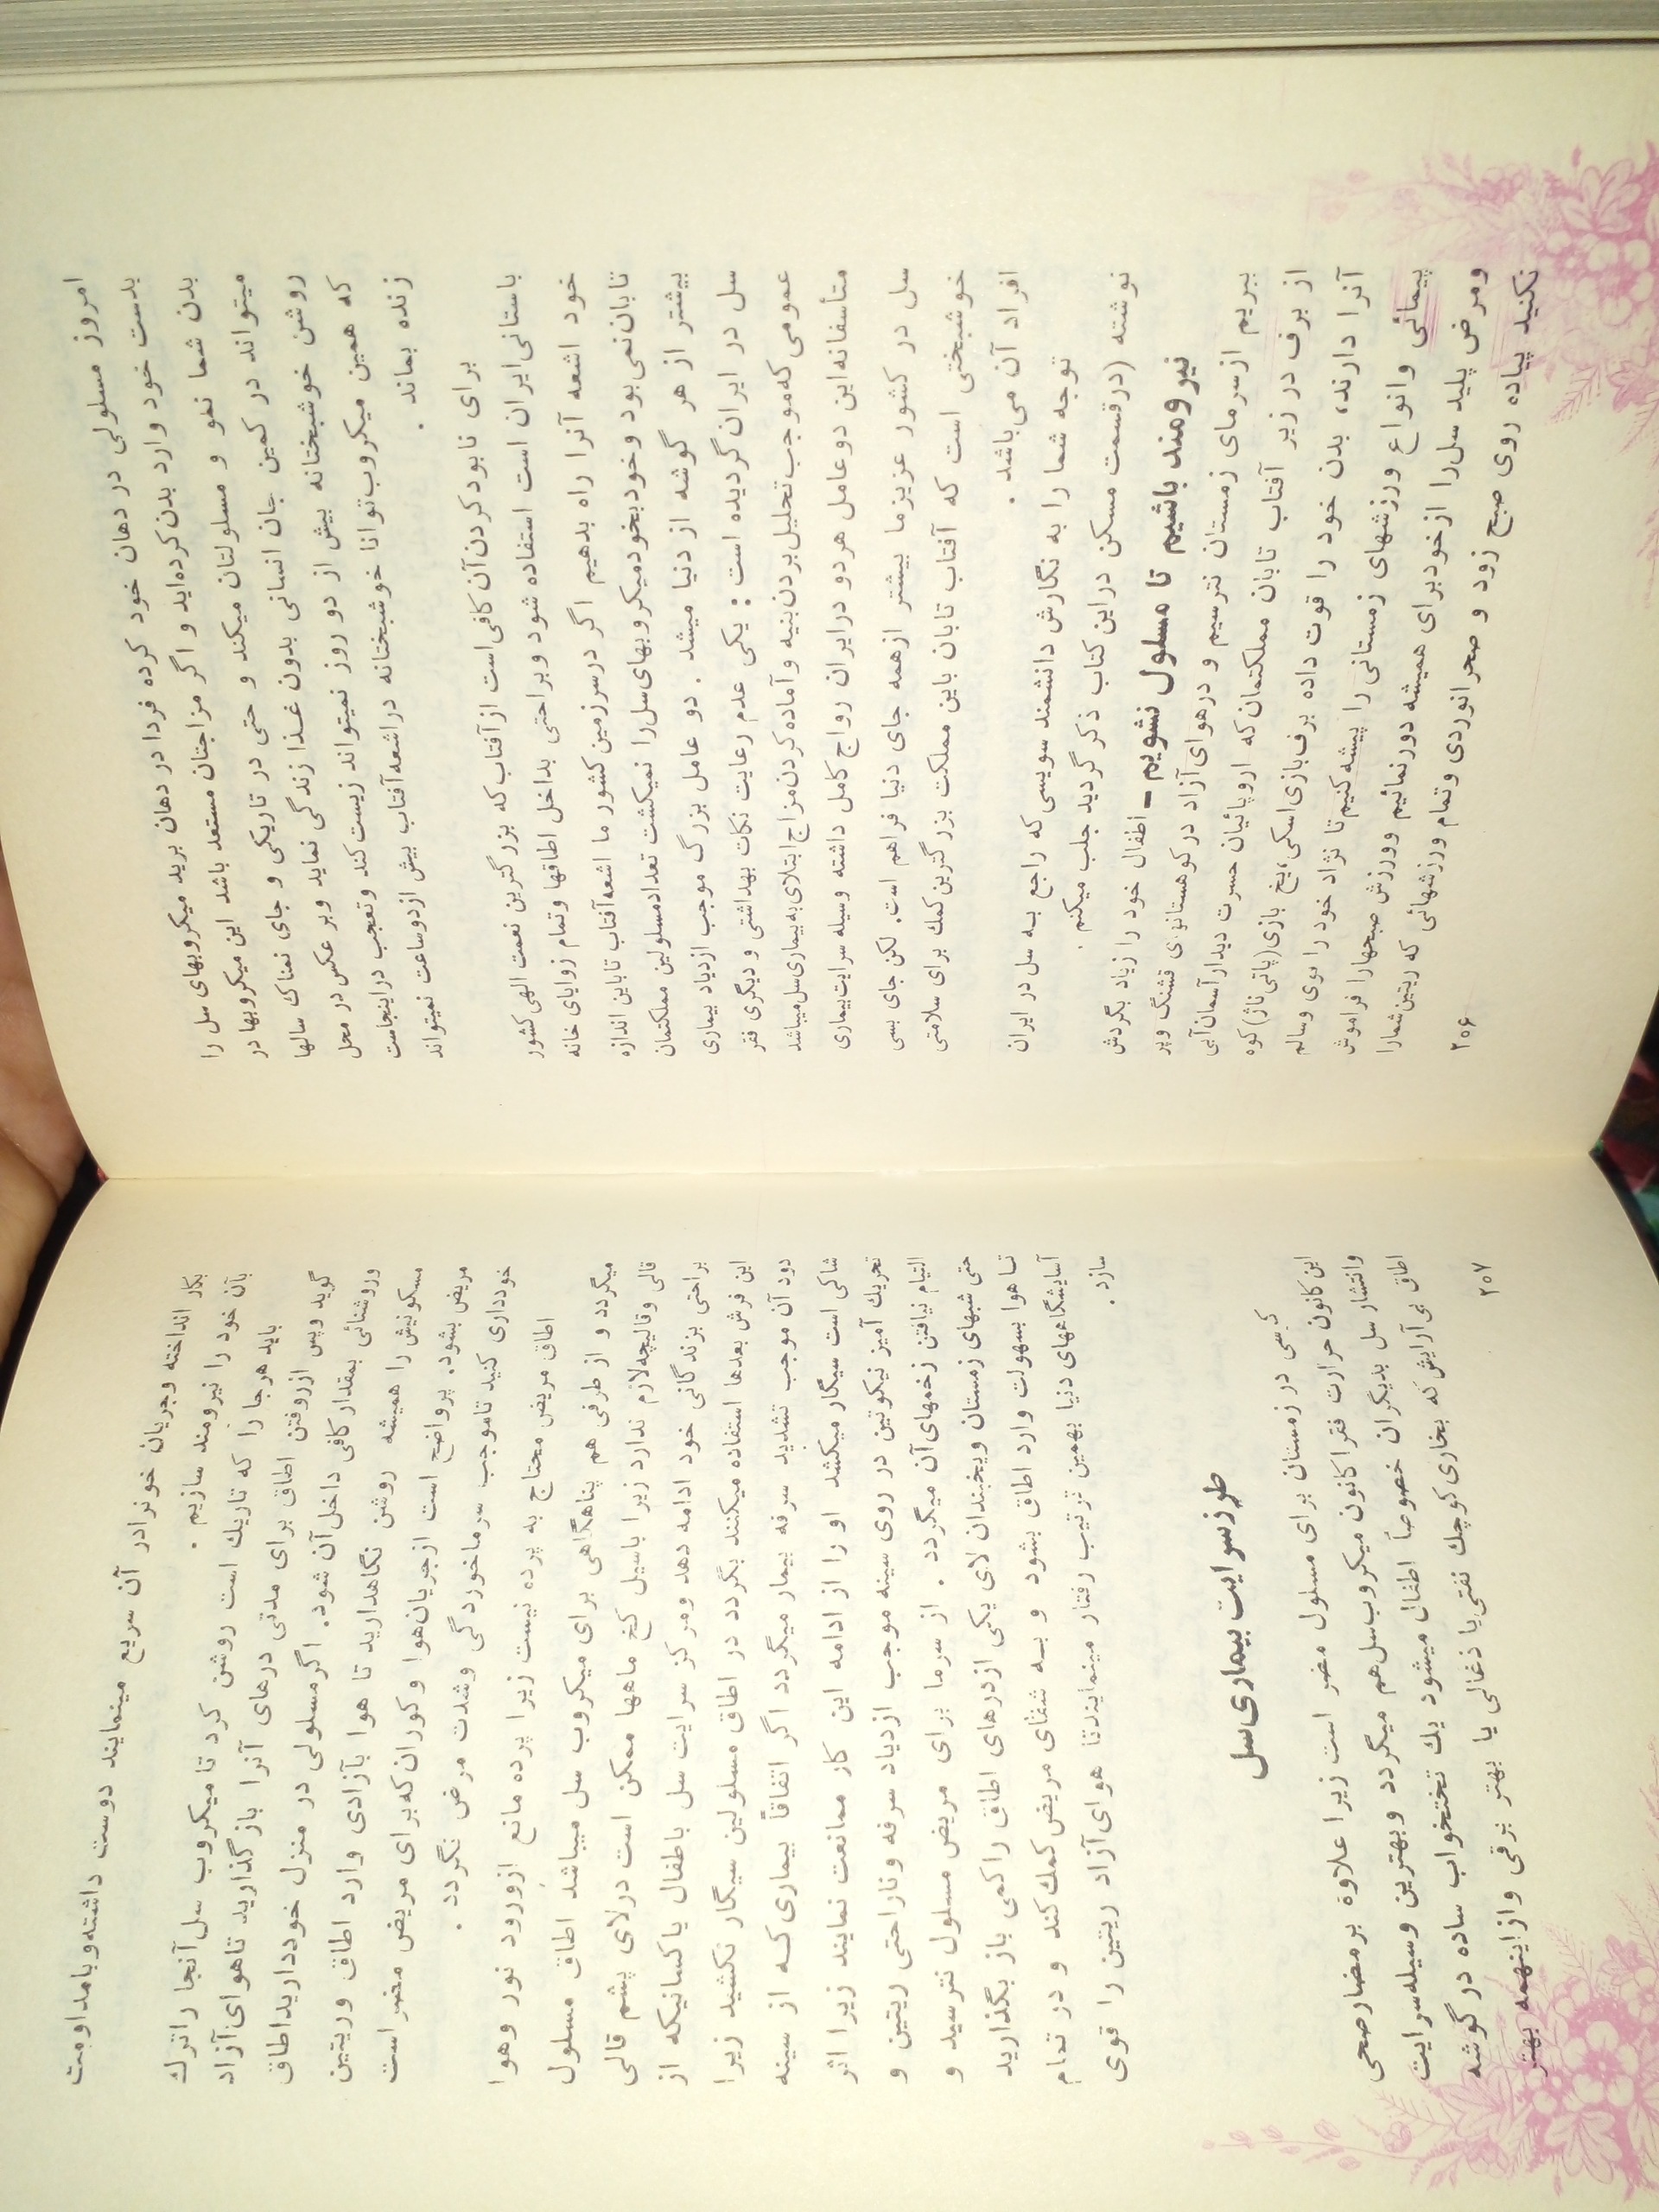 امروز مسلولی در دهان خود کرده فردا در دهان برید میکروبهای سل را
بدست خود وارد بدن کرده‌اید و اگر مزاجتان مستعد باشد این میکروبها در
بدن شما نمو و مسلولتان میکند و حتی در تاریکی و جای نمناک سالها
میتواند در کمین جان انسانی بدون غذا زندگی نماید وبر عکس در محل
روشن خوشبختانه بیش از دو روز نمیتواند زیست کند و تعجب دراینجاست
که همین میکروب توانا خوشبختانه دراشعه آفتاب بیش ازدوساعت نمیتواند
زنده بماند .
برای نابود کردن آن کافی است از آفتاب که بزرگترین نعمت الهی کشور
باستانی ایران است استفاده شود وبراحتی بداخل اطاقها وتمام زوایای خانه
خود اشعه آنرا راه بدهیم اگر درسرزمین کشور ما اشعه آفتاب تاباین اندازه
تابان نمی بود وخود بخود میکروبهای سل را نمیکشت تعداد مسلولین مملکتمان
بیشتر از هر گوشه از دنیا میشد . دو عامل بزرگ موجب ازدیاد بیماری
سل در ایران گردیده است : یکی عدم رعایت نکات بهداشتی و دیگری فقر
عمومی که موجب تحلیل بردن بنیه وآماده کردن مزاج ابتلای به بیماری سل میباشد
متأسفانه این دو عامل هر دو درایران رواج کامل داشته وسیله سرایت بیماری
سل در کشور عزیز ما بیشتر ازهمه جای دنیا فراهم است. لکن جای بسی
خوشبختی است که آفتاب تابان باین مملکت بزرگترین کمک برای سلامتی
افراد آن می باشد .
توجه شما را به نگارش دانشمند سویسی که راجع به سل در ایران
نوشته (درقسمت مسکن دراین کتاب ذکر گردید جلب میکنم .
نیرومند باشیم تا مسلول نشویم - اطفال خود را زیاد بگردش
ببریم ازسرمای زمستان نترسیم و درهوای آزاد در کوهستانهای قشنگ وپر
از برف در زیر آفتاب تابان مملکتمان که اروپائیان حسرت دیدار آسمان آبی
آنرا دارند، بدن خود را قوت داده برف بازی اسکی، یخ بازی (پاتی ناژ) کوه
پیمائی وانواع ورزشهای زمستانی را پیشه کنیم تا نژاد خود را قوی وسالم
ومرض پلید سل را ازخود برای همیشه دورنمائیم وورزش صبحهارا فراموش
نکنید پیاده روی صبح زود و صحرانوردی وتمام ورزشهائی که ریتین شمارا
۲۰۶
بکار انداخته وجریان خونرا در آن سریع مینمایند دوست داشته وبا مداومت
بآن خود را نیرومند سازیم .
باید هرجا را که تاریک است روشن کرد تا میکروب سل آنجا راترک
گوید وپس ازروفتن اطاق برای مدتی درهای آنرا باز گذارید تاهوای آزاد
وروشنائی بمقدار کافی داخل آن شود. اگر مسلولی در منزل خوددارید اطاق
مسکونیش را همیشه روشن نگاهدارید تا هوا بآزادی وارد اطاق وریتین
مریض بشود. پرواضح است ازجریان هوا وکوران که برای مریض مضر است
خودداری کنید تاموجب سرماخوردگی وشدت مرض نگردد .
اطاق مریض محتاج به پرده نیست زیرا پرده مانع ازورود نور وهوا
میگردد و از طرفی هم پناهگاهی برای میکروب سل میباشد اطاق مسلول
قالی وقالیچه لازم ندارد زیرا باسیل کخ ماهها ممکن است درلای پشم قالی
براحتی بزندگانی خود ادامه دهد ومرکز سرایت سل باطفال یاکسانیکه از
این فرش بعدها استفاده میکنند بگردد در اطاق مسلولین سیگار نکشید زیرا
دود آن موجب تشدید سرفه بیمار میگردد اگر اتفاقاً بیماری که از سینه
شاکی است سیگار میکشد او را از ادامه این کار ممانعت نمایند زیرا اثر
تحریک آمیز نیکوتین در روی سینه موجب ازدیاد سرفه وناراحتی ریتین و
التیام نیافتن زخمهای آن میگردد . از سرما برای مریض مسلول نترسید و
حتی شبهای زمستان ویخبندان لای یکی ازدرهای اطاق راکمی باز بگذارید
تا هوا بسهولت وارد اطاق بشود و به شفای مریض کمک کند و در تمام
آسایشگاههای دنیا بهمین ترتیب رفتار مینمایندتا هوای آزاد ریتین را قوی
سازد .
طرز سرایت بیماری سل
کرسی در زمستان برای مسلول مضر است زیرا علاوه برمضارصحی
این کانون حرارت فقرا کانون میکروب سل هم میگردد وبهترین وسیله سرایت
وانتشار سل بدیگران خصوصاً اطفال میشود یک تختخواب ساده در گوشه
اطاق بی آرایش که بخاری کوچک نفتی یا ذغالی یا بهتر برقی وازاینهمه بهتر
۲۰۷